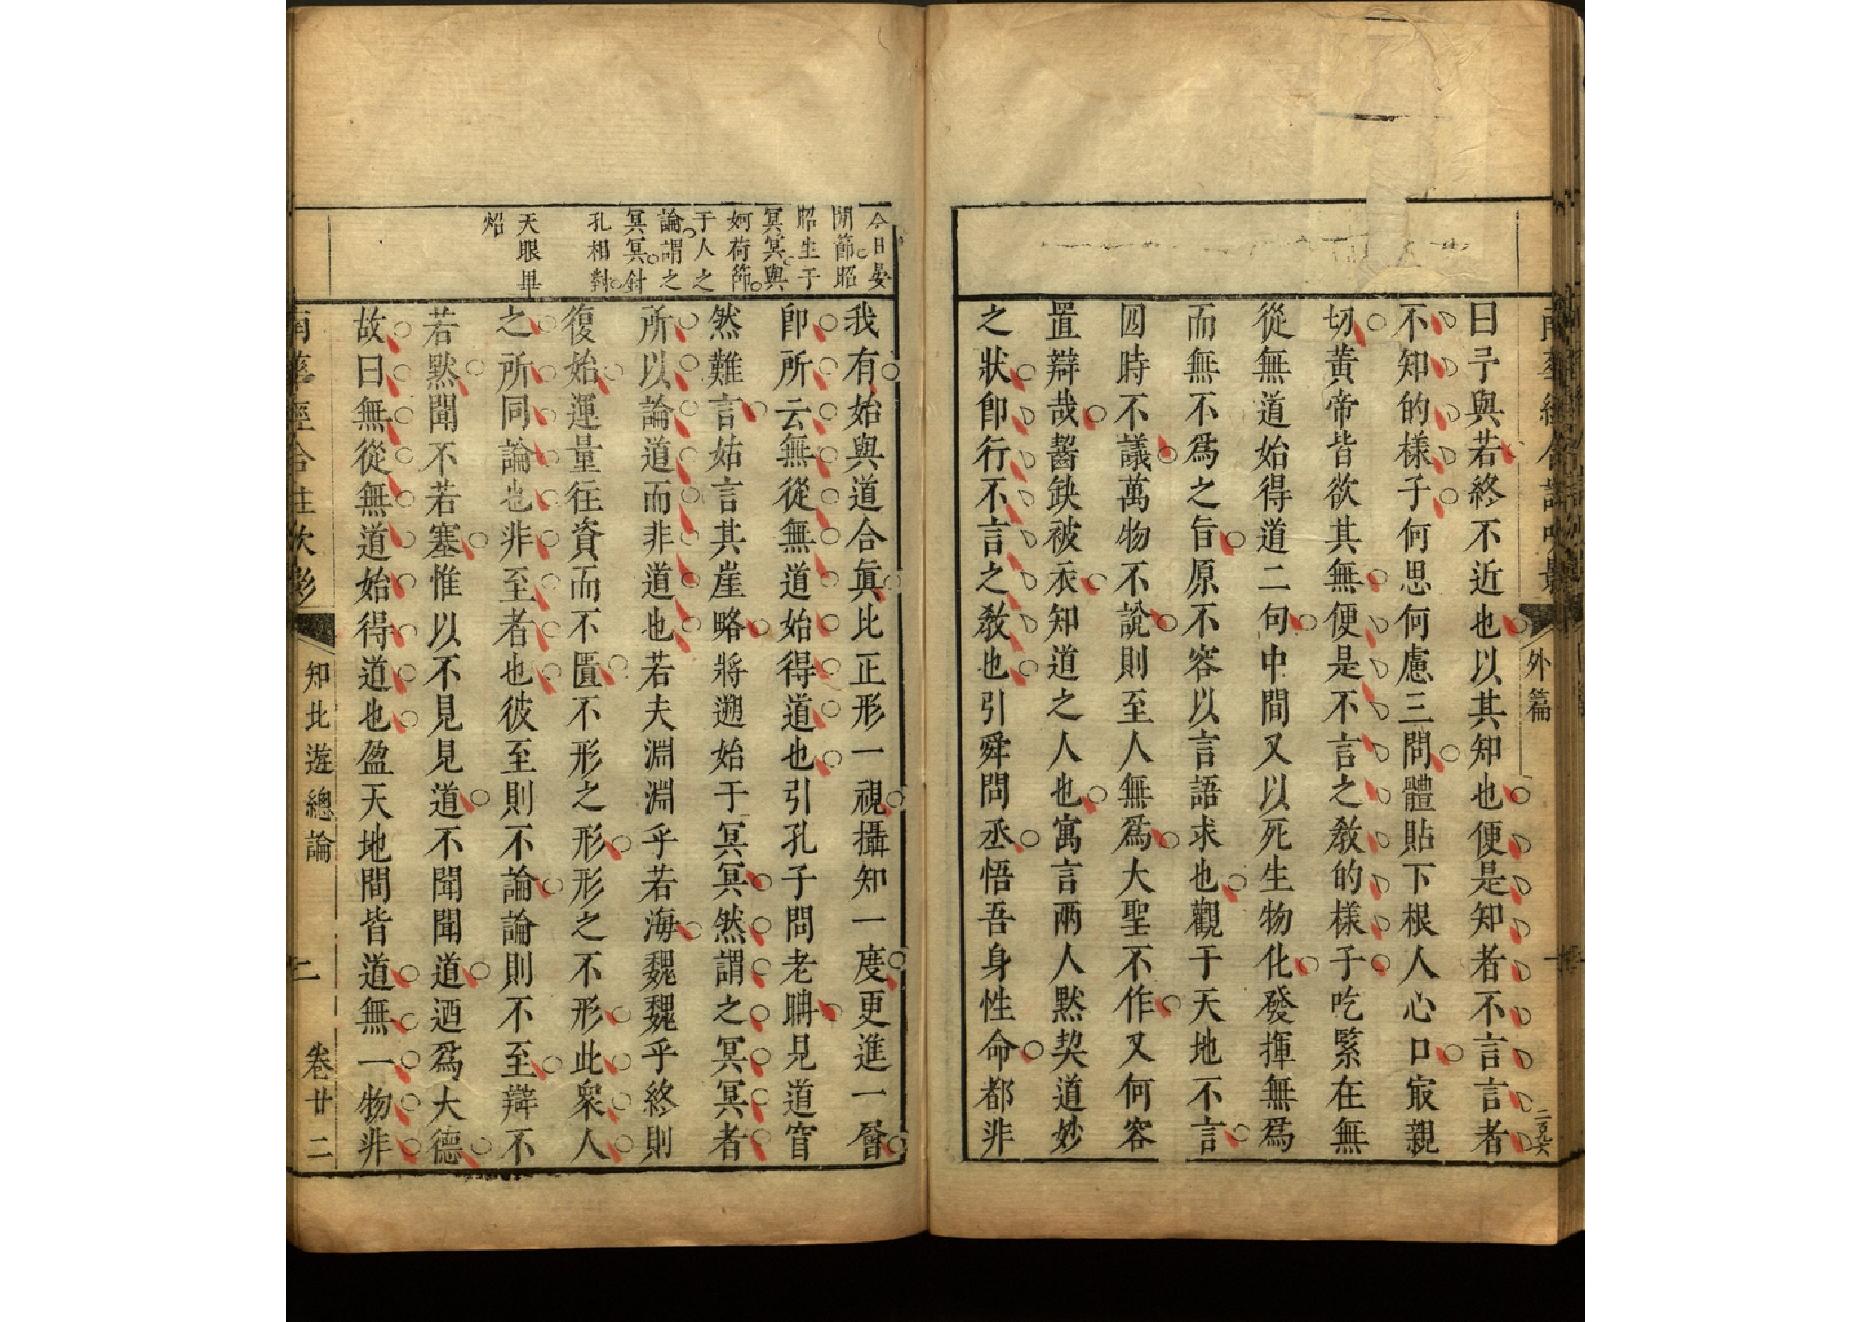 外篇
曰予與若終不近也以其知也便是知者不言言者
不知的樣子何思何慮三問體貼下根人心口㝡親
切黃帝皆欲其無便是不言之敎的樣子吃緊在無
從無道始得道二句中間又以死生物化發揮無爲
而無不爲之旨原不容以言語求也觀于天地不言
四時不議萬物不說則至人無爲大聖不作又何容
置辯哉齧缺被衣知道之人也寓言兩人默契道妙
之狀卽行不言之敎也引舜問丞悟吾身性命都非
今日晏
閒節昭
昭生于
冥冥與
妸荷節
于人之
論謂之
冥冥針
孔相對
天眼畢
炤
我有始與道合眞比正形一視攝知一度更進一層
卽所云無從無道始得道也引孔子問老聃見道窅
然難言姑言其崖略將遡始于冥冥然謂之冥冥者
所以論道而非道也若夫淵淵乎若海魏魏乎終則
復始運量往資而不匱不形之形形之不形此衆人
之所同論也非至者也彼至則不論論則不至辯不
若默聞不若塞惟以不見見道不聞聞道迺爲大德
故曰無從無道始得道也盈天地間皆道無一物非
知北遊總論 二 卷廿二